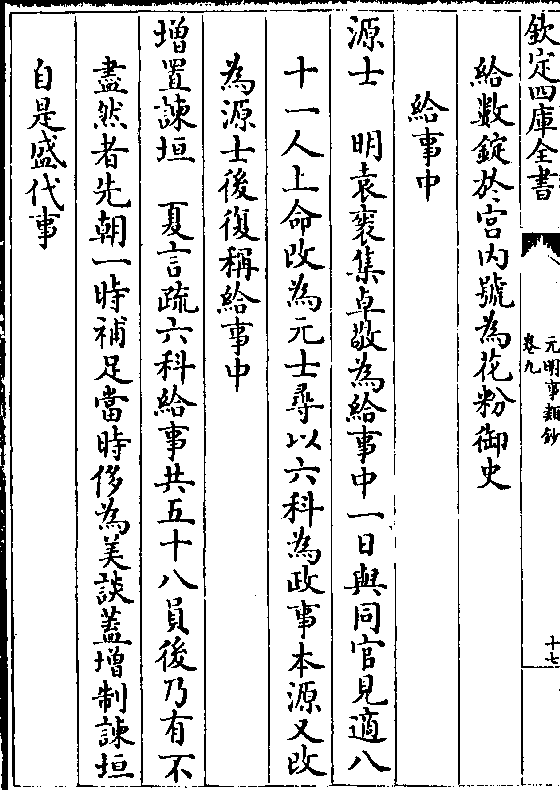 欽定四庫全書
元明事類鈔
卷九
十七
給數錠於宮內號為花粉御史
給事中
源士　明袁袠集卓敬為給事中一日與同官見適八
十一人上命改為元士尋以六科為政事本源又改
為源士後復稱給事中
增置諫垣　夏言疏六科給事共五十八員後乃有不
盡然者先朝一時補足當時侈為美談蓋增制諫垣
自是盛代事